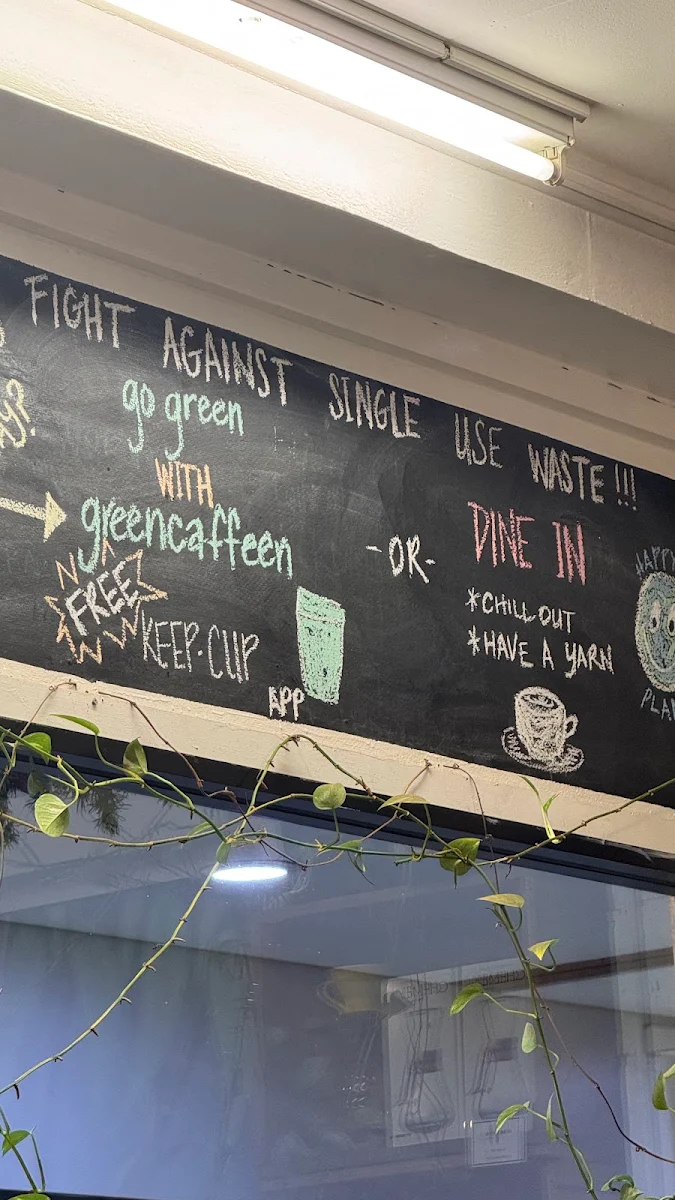 FIGHT AGAINST SINGLE USE WASTE!!!
go green
WITH
greencaffeen
FREE
KEEP-CUP
APP
-OR-
DINE IN
*CHILL OUT
*HAVE A YARN
HAPPY